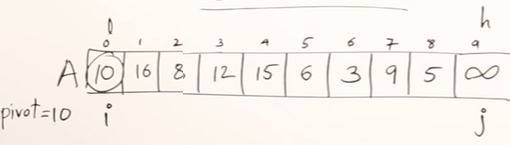 l h
0 1 2 3 4 5 6 7 8 9
A 10 16 8 12 15 6 3 9 5 ∞
pivot=10 i j